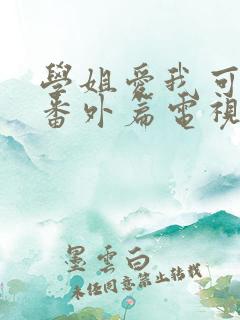 學姐愛我可
番外篇電視
墨雲白
未经同意禁止转载